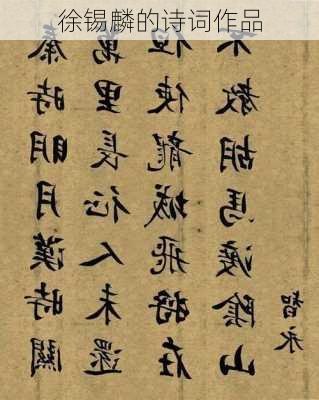 徐锡麟的诗词作品
秦時明月漢時關
萬里長征人未還
但使龍城飛將在
不教胡馬渡陰山
智永